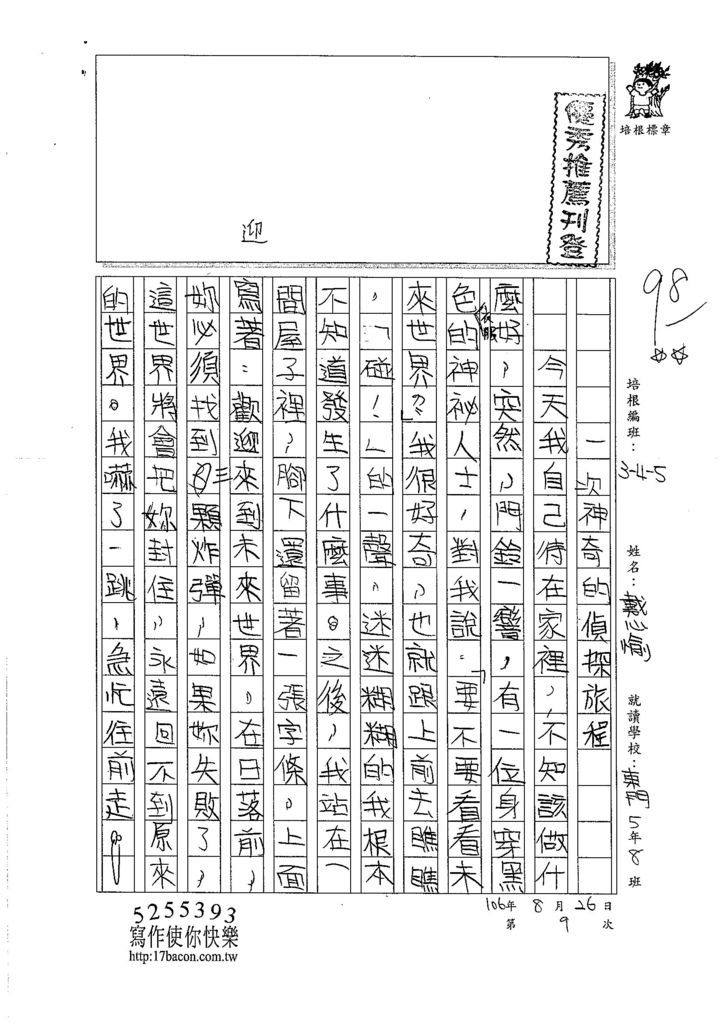 培根標章
優秀推薦刊登
迎
98
培根編班：3-4-5
姓名：戴心愉
就讀學校：東門5年8班
106年8月26日
第9次
一次神奇的偵探旅程
今天我自己待在家裡，不知該做什
麼好，突然，門鈴一響，有一位身穿黑
色衣服的神祕人士，對我說：「要不要看看未
來世界？」我很好奇，也就跟上前去瞧瞧
，「碰！」的一聲，迷迷糊糊的我根本
不知道發生了什麼事。之後，我站在一
間屋子裡，腳下還留著一張字條。上面
寫著：歡迎來到未來世界，在日落前，
妳必須找到三顆炸彈，如果妳失敗了，
這世界將會把妳封住，永遠回不到原來
的世界。我嚇了一跳，急忙往前走。
5255393
寫作使你快樂
http:17bacon.com.tw